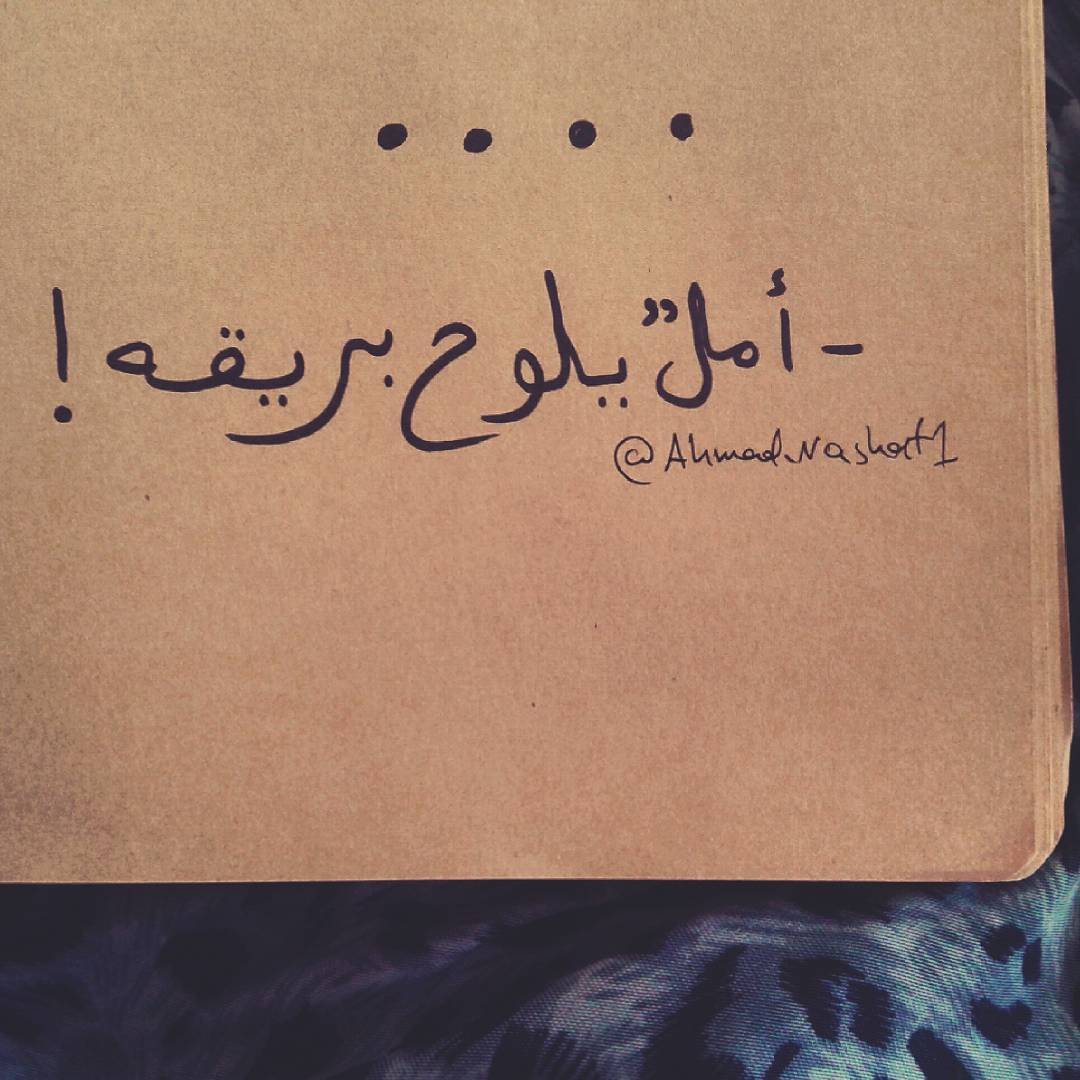 . . . .
- أملٌ يلوح بريقه !
@Ahmad.Nashat1